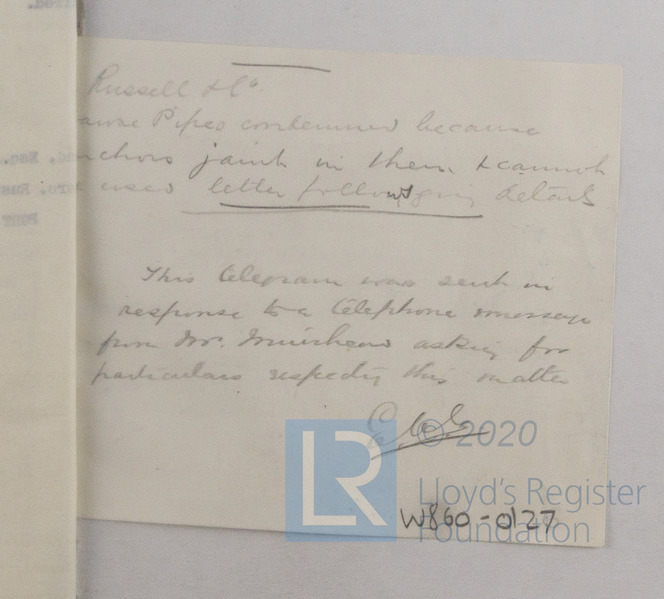 Russell & Co.
Pipes condemned because
joint in them & cannot
used letter following details
This telegram was sent in
response to a telephone message
from Mr. Muirhead asking for
particulars respecting this matter
© 2020
LR
Lloyd's Register
Foundation
W860-0127